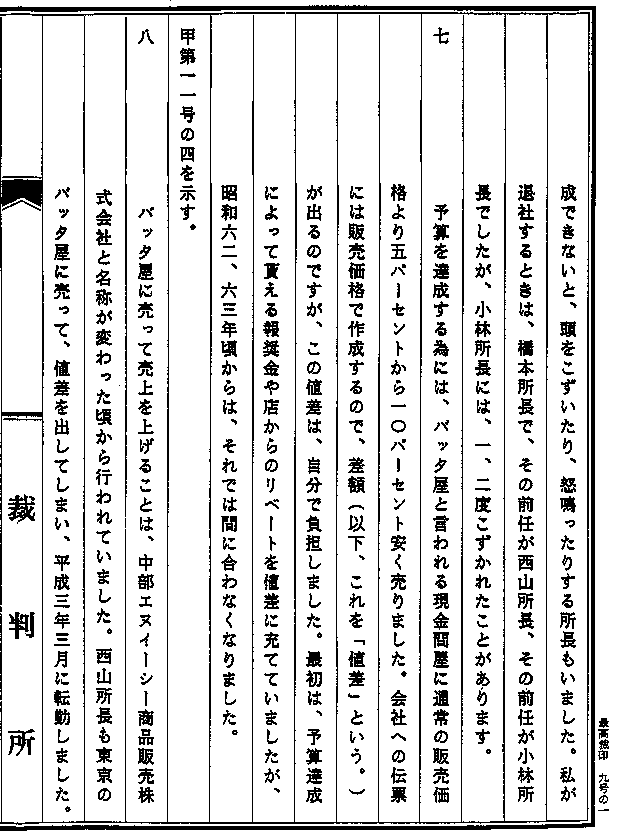 最高裁印 九号の一
成できないと、頭をこずいたり、怒鳴ったりする所長もいました。私が
退社するときは、橋本所長で、その前任が西山所長、その前任が小林所
長でしたが、小林所長には、一、二度こずかれたことがあります。
七
予算を達成する為には、バッタ屋と言われる現金問屋に通常の販売価
格より五パーセントから一〇パーセント安く売りました。会社への伝票
には販売価格で作成するので、差額(以下、これを「値差」という。)
が出るのですが、この値差は、自分で負担しました。最初は、予算達成
によって貰える報奨金や店からのリベートを値差に充てていましたが、
昭和六二、六三年頃からは、それでは間に合わなくなりました。
甲第一一号の四を示す。
八
バッタ屋に売って売上を上げることは、中部エヌイーシー商品販売株
式会社と名称が変わった頃から行われていました。西山所長も東京の
バッタ屋に売って、値差を出してしまい、平成三年三月に転勤しました。
裁判所